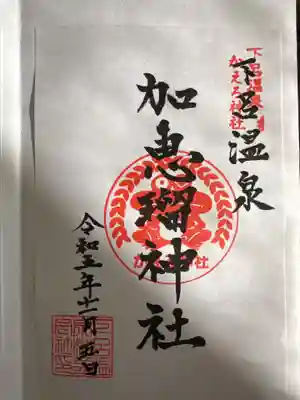 下呂温泉
かえる神社
下呂温泉
加恵瑠神社
令和五年十一月五日